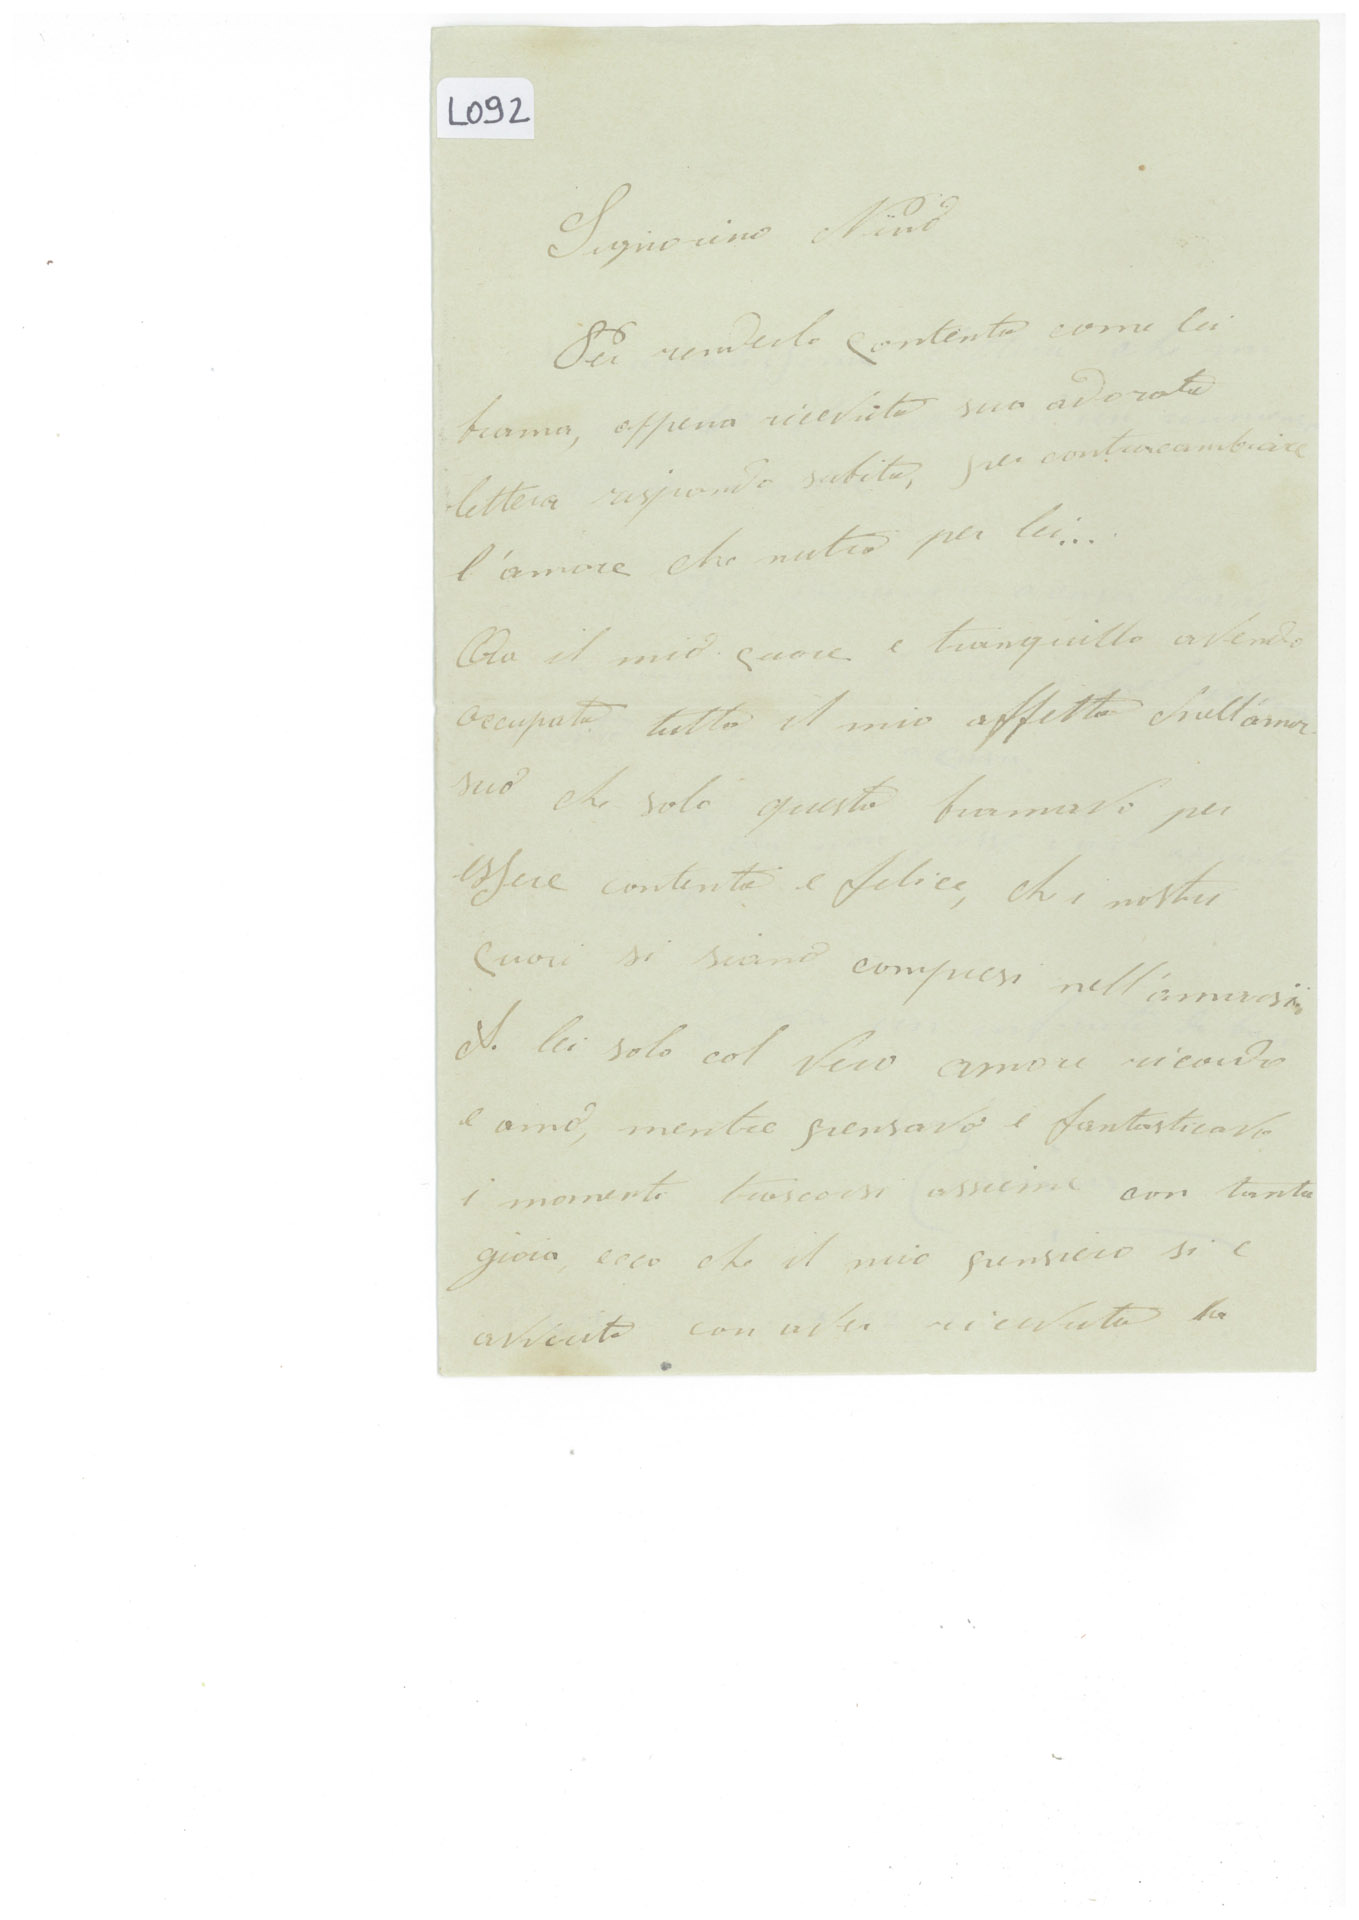 L092
Signorino Ninó
Per renderlo contento come lei
brama, appena ricevuta sua adorata
lettera rispondo subito, per contracambiare
l'amore che nutro per lei....
Ora il mio cuore e tranquillo avendo
occupato tutto il mio affetto nell'amor
suo che solo questo bramavo per
essere contenta e felice, che i nostri
cuori si siano compresi nell'amarsi
A lei solo col vero amore ricordo
e amo, mentre pensavo e fantasticavo
i momenti trascorsi assieme con tanta
gioia, ecco che il mio pensiero si e
avvicito con aver ricevuta la